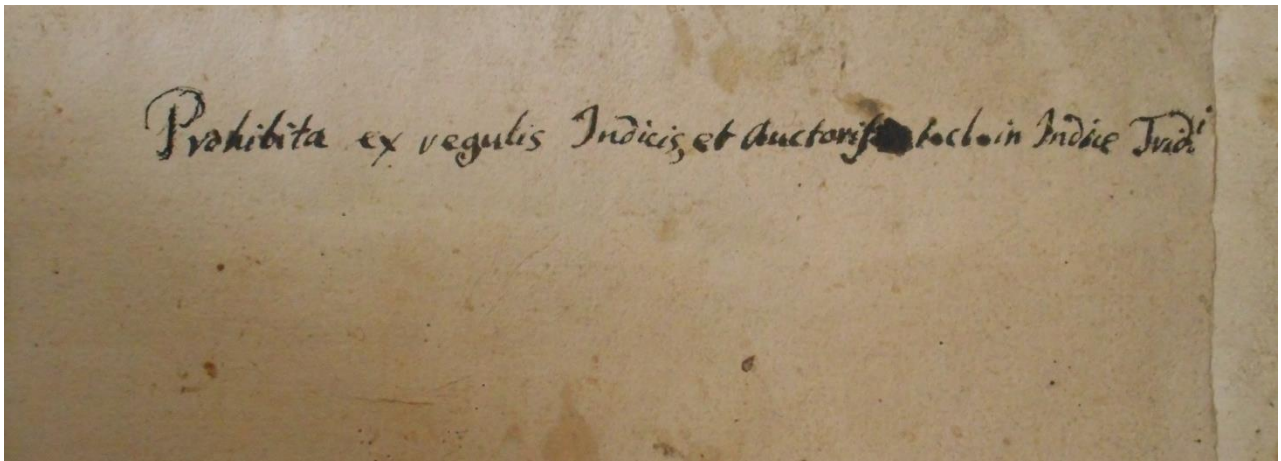 Prohibita ex regulis Indicis, et Auctoris in Indice Tridⁱ